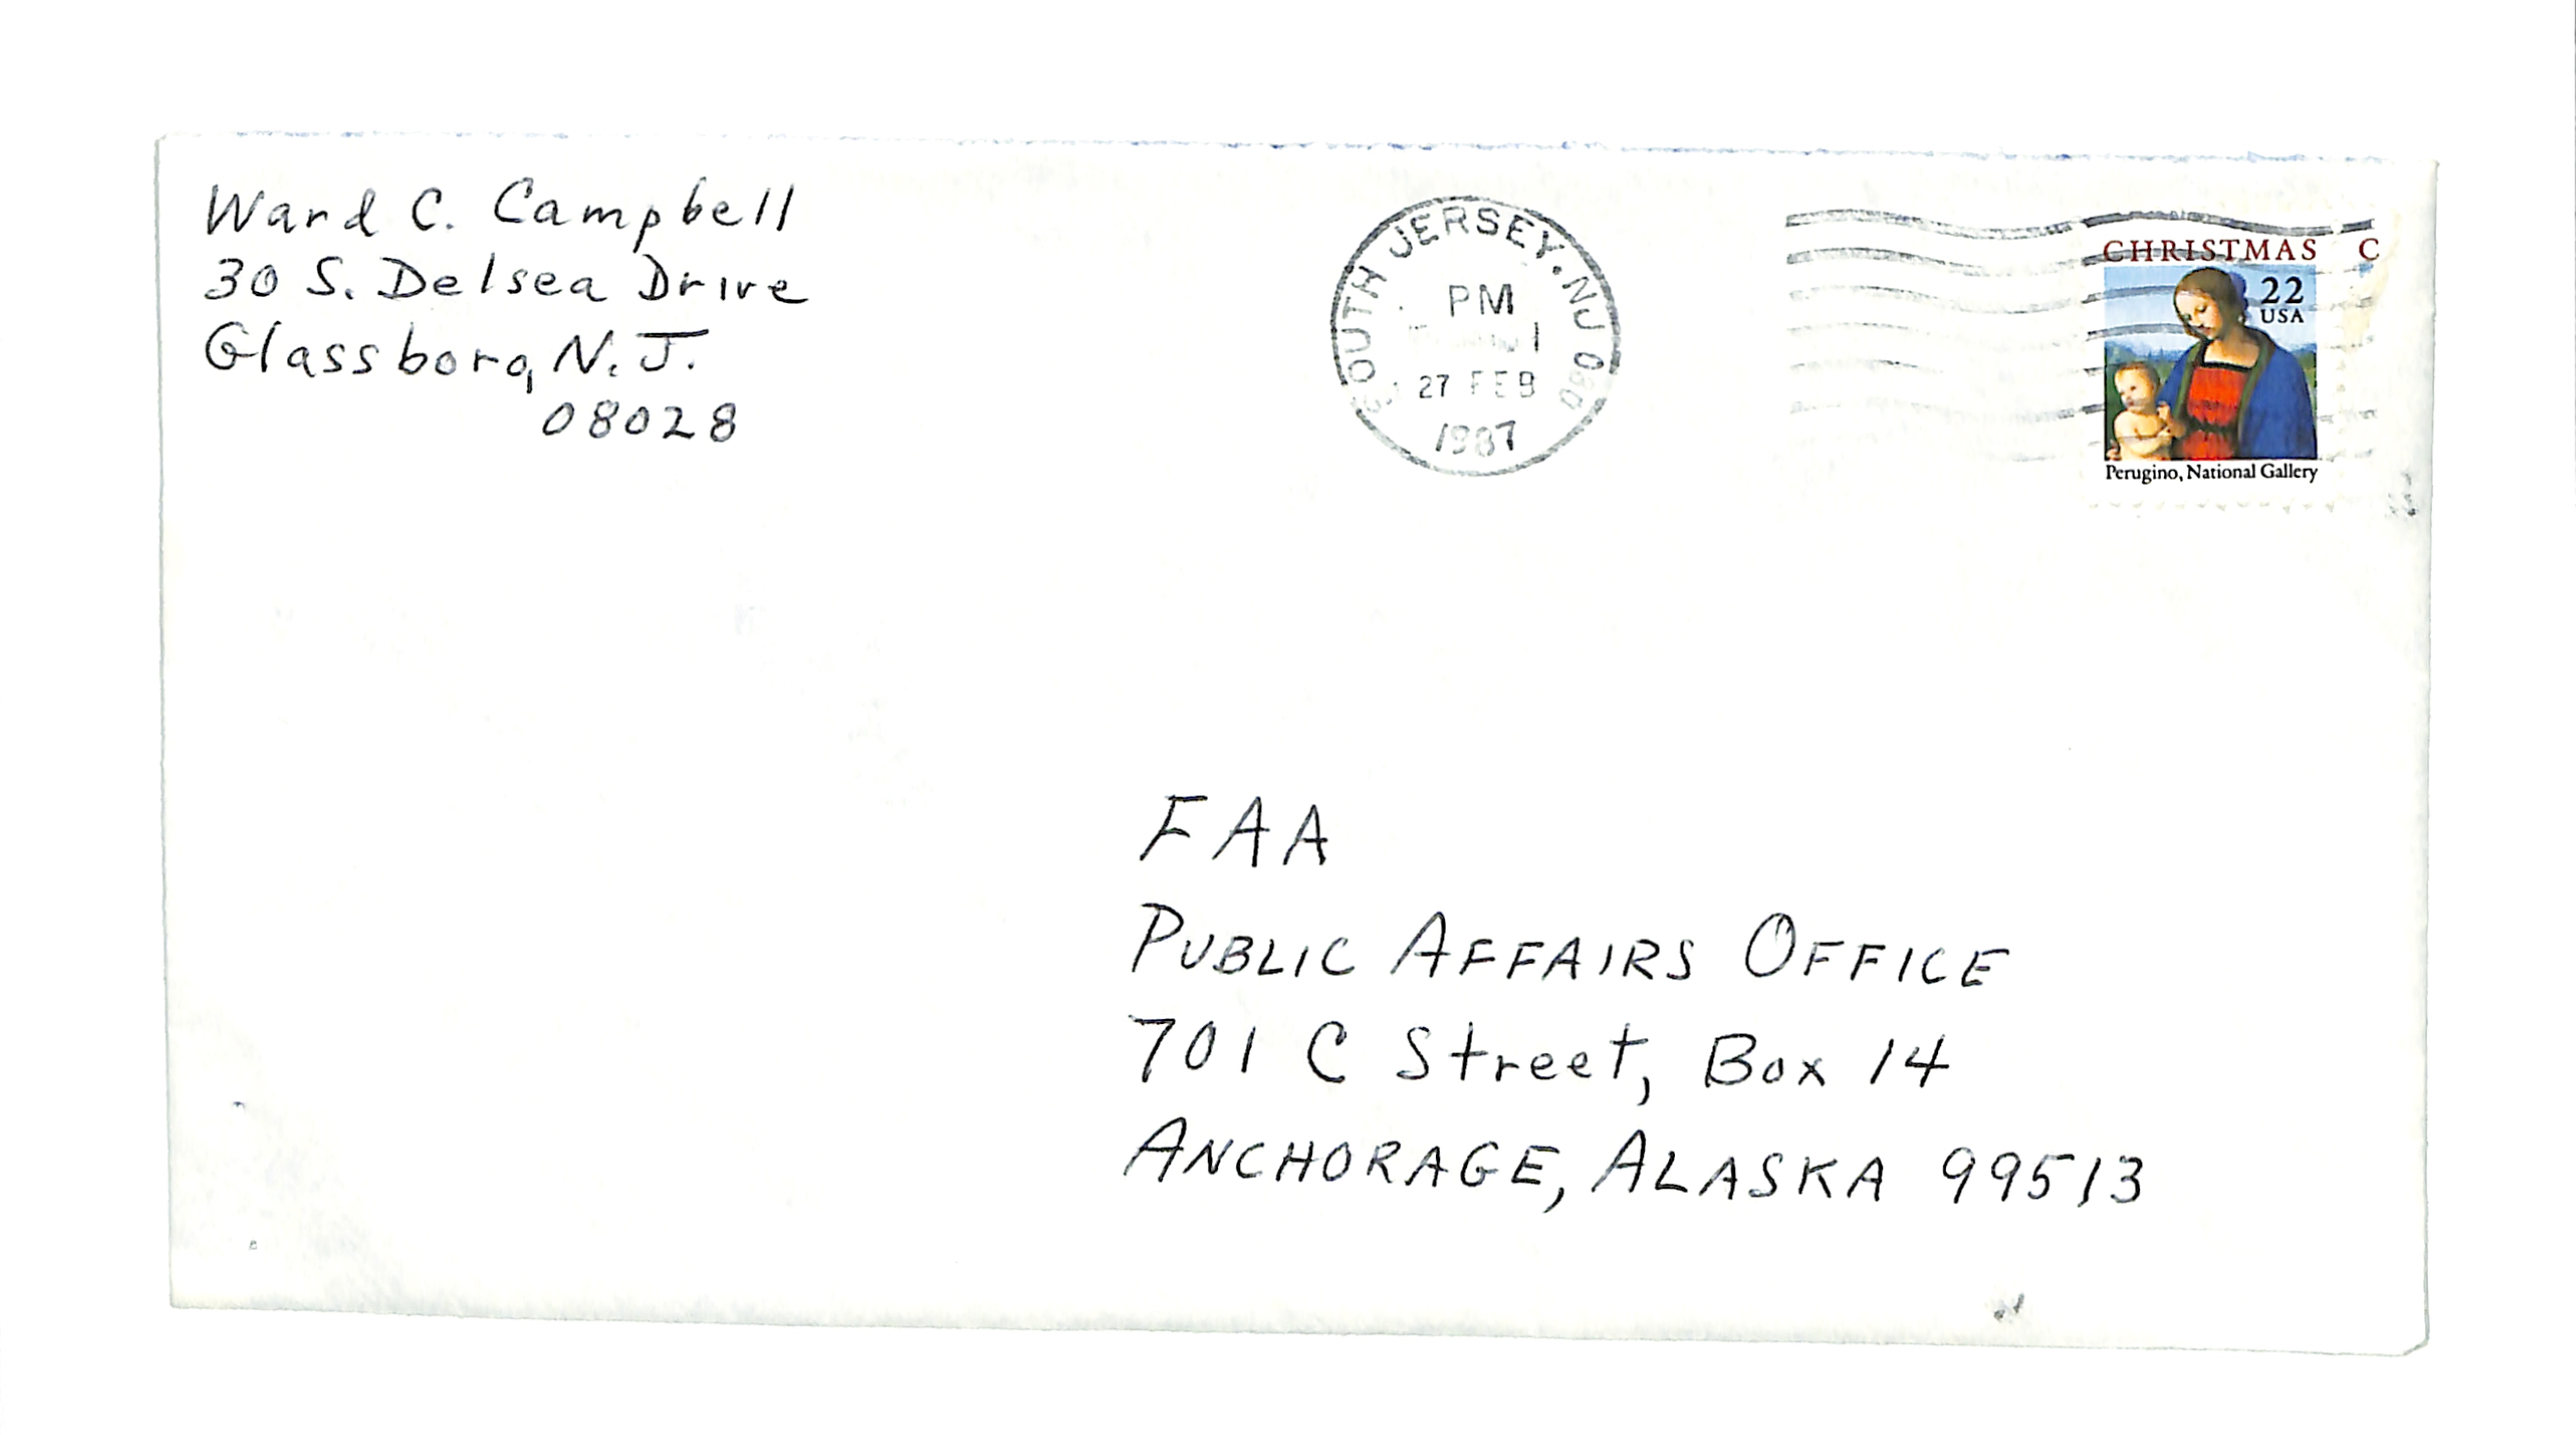 Ward C. Campbell
30 S. Delsea Drive
Glassboro, N.J.
08028
SOUTH JERSEY, NJ 080
PM
27 FEB
1987
CHRISTMAS C
22
USA
Perugino, National Gallery
FAA
PUBLIC AFFAIRS OFFICE
701 C Street, Box 14
ANCHORAGE, ALASKA 99513